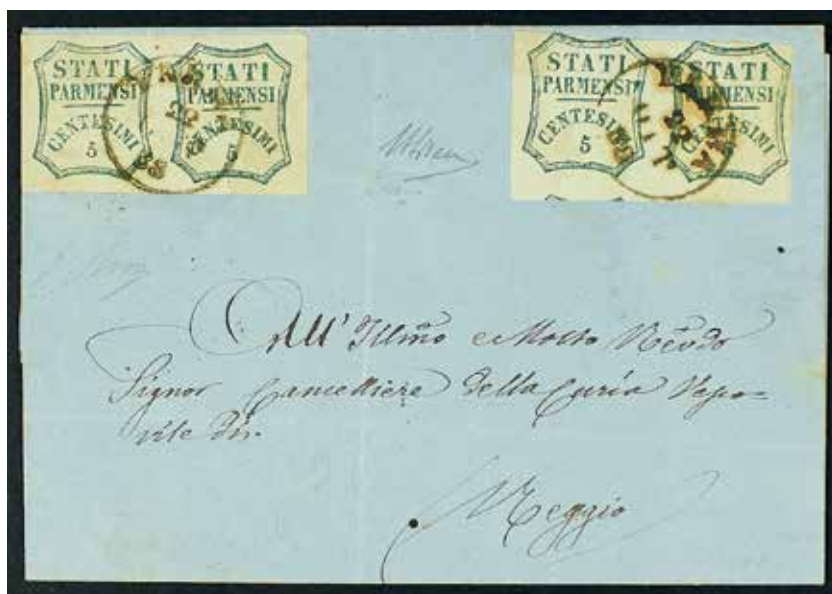 STATI
PARMENSI
CENTESIMI
5
STATI
PARMENSI
CENTESIMI
5
STATI
PARMENSI
CENTESIMI
5
STATI
PARMENSI
CENTESIMI
5
22
22
All' Illmo e Molto Revdo
Signor Cancelliere della Curia Vesco=
vile di
Reggio